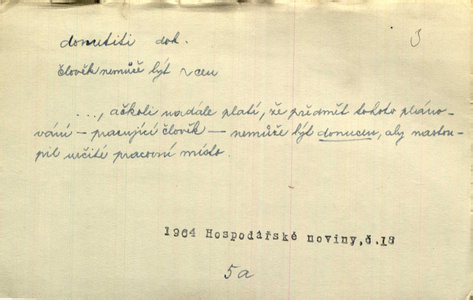 donutiti dok. 3
člověk nemůže být ~cen
..., ačkoli nadále platí, že předmět tohoto pláno-
vání – pracující člověk – nemůže být donucen, aby nastou-
pil určité pracovní místo.
1964 Hospodářské noviny,č.18
5a